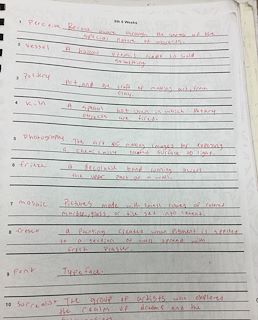 5th 6 Weeks
1 Perceive Become aware through the senses of the
special nature of objects.
2 Vessel A hollow utensil made to hold
something
3 Pottery Pot, and the craft of making pot, from
clay.
4 Kiln A special hot oven in which pottery
objects are fired.
5 Photography The art of making images by exposing
a chemically treated surface to light.
6 frieze A decorated band running along
the upper part of a wall.
7 mosaic Pictures made with small cubes of colored
marble, glass, or tile set into cement.
8 Fresco a Painting created when pigment is applied
to a section of wall spread with
fresh plaster.
9 Font Typeface.
10 Surrealist The group of artists who explored
the realm of dreams and the